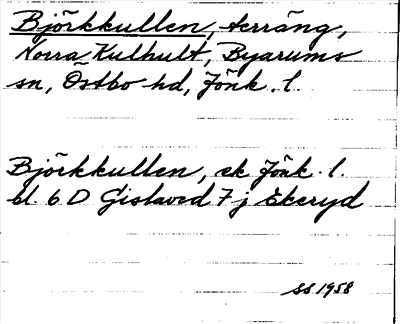 Björkkullen, terräng,
Norra Kulhult, Byarums
sn, Östbo hd, Jönk. l.
Björkkullen, ek Jönk. l.
bl. 6 D Gislaved 7 j Ekeryd
SS 1958